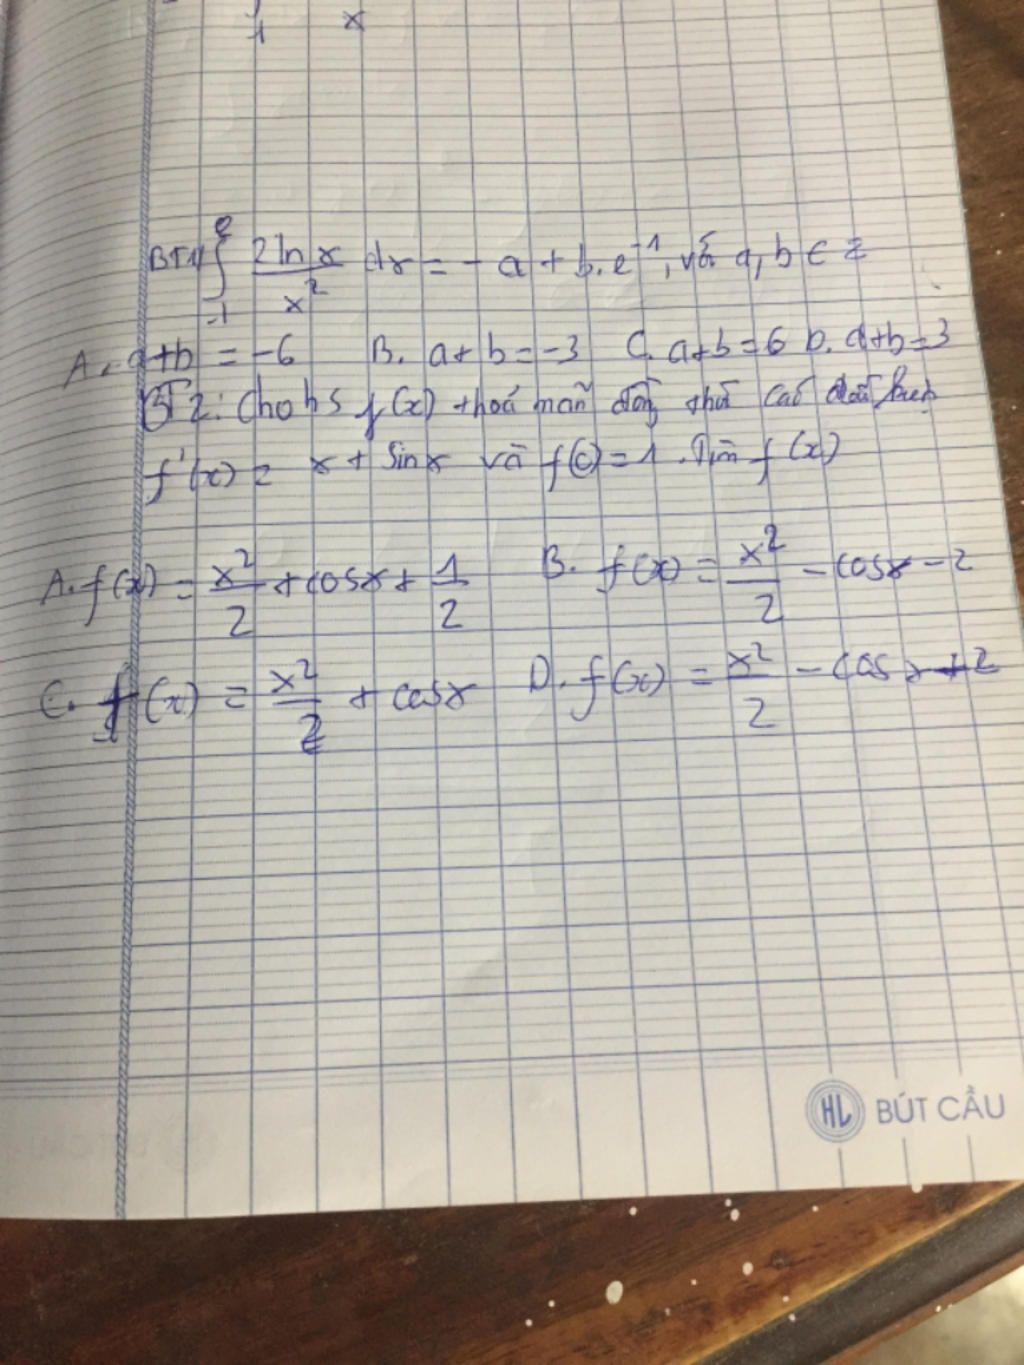 1 x
BT1 ∫ e -1 2lnx / x² dx = - a + b.e⁻¹, với a, b ∈ Z
A. a+b = -6 B. a+b = -3 C. a+b = 6 D. a+b = 3
BT2: Cho hs f(x) thoả mãn đồng thời các điều kiện
f'(x) = x + sinx và f(0) = 1. Tìm f(x)
A. f(x) = x²/2 + cosx + 1/2 B. f(x) = x²/2 - cosx - 2
C. f(x) = x²/2 + cosx D. f(x) = x²/2 - cosx + 2
HL BÚT CẦU